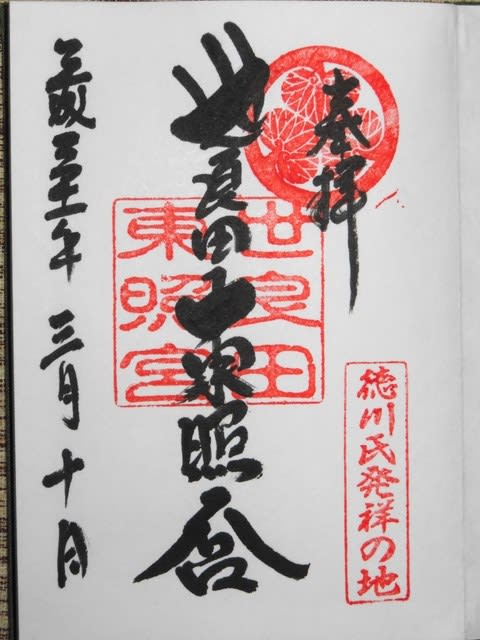 奉拝
徳川氏発祥の地
世良田山東照宮
世良田
東照宮
平成三十一年 三月 十日